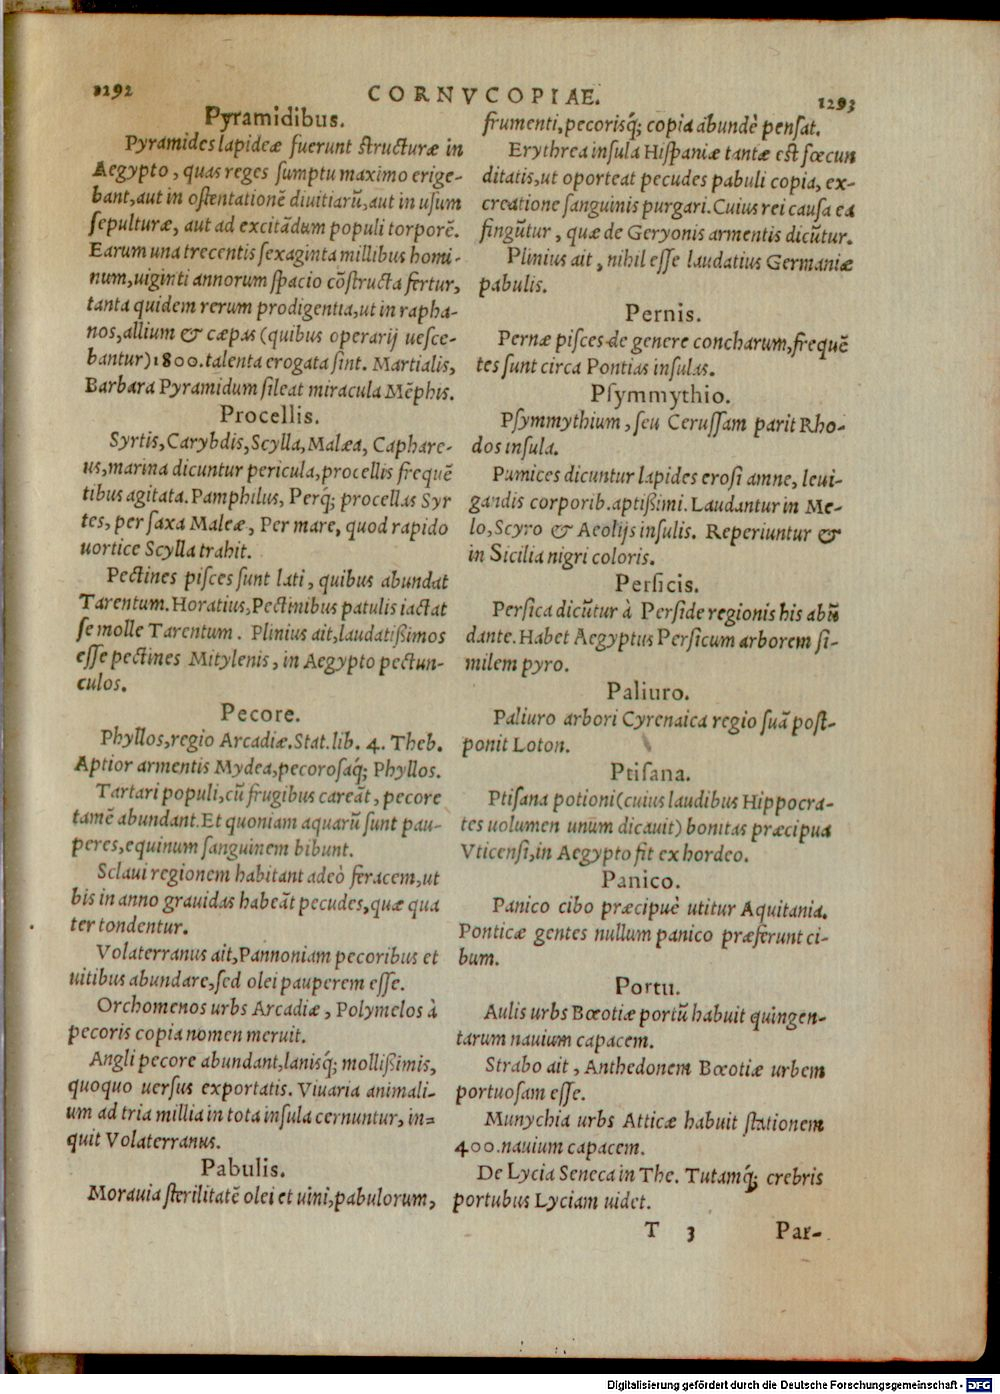 1292
CORNVCOPIAE.
1293
Pyramidibus.
Pyramides lapideæ fuerunt structuræ in
Aegypto, quas reges sumptu maximo erige-
bant, aut in ostentationē diuitiarū, aut in usum
sepulturæ, aut ad excitādum populi torporē.
Earum una trecentis sexaginta millibus homi-
num, uiginti annorum spacio cōstructa fertur,
tanta quidem rerum prodigentia, ut in rapha-
nos, allium & cæpas (quibus operarij uesce-
bantur) 1800. talenta erogata sint. Martialis,
Barbara Pyramidum sileat miracula Mēphis.
Procellis.
Syrtis, Carybdis, Scylla, Malæa, Caphare-
us, marina dicuntur pericula, procellis frequē
tibus agitata. Pamphilus, Perq́; procellas Syr
tes, per saxa Maleæ, Per mare, quod rapido
uortice Scylla trahit.
Pectines pisces sunt lati, quibus abundat
Tarentum. Horatius, Pectinibus patulis iactat
se molle Tarentum. Plinius ait, laudatißimos
esse pectines Mitylenis, in Aegypto pectun-
culos.
Pecore.
Phyllos, regio Arcadiæ. Stat. lib. 4. Theb.
Aptior armentis Mydea, pecorosaq́; Phyllos.
Tartari populi, cū frugibus careāt, pecore
tamē abundant. Et quoniam aquarū sunt pau-
peres, equinum sanguinem bibunt.
Sclaui regionem habitant adeò feracem, ut
bis in anno grauidas habeāt pecudes, quæ qua
ter tondentur.
Volaterranus ait, Pannoniam pecoribus et
uitibus abundare, sed olei pauperem esse.
Orchomenos urbs Arcadiæ, Polymelos à
pecoris copia nomen meruit.
Angli pecore abundant, lanisq́; mollißimis,
quoquo uersus exportatis. Viuaria animali-
um ad tria millia in tota insula cernuntur, in=
quit Volaterranus.
Pabulis.
Morauia sterilitatē olei et uini, pabulorum,
frumenti, pecorisq́; copia abundè pensat.
Erythrea insula Hispaniæ tantæ est fœcun
ditatis, ut oporteat pecudes pabuli copia, ex-
creatione sanguinis purgari. Cuius rei causa ea
fingūtur, quæ de Geryonis armentis dicūtur.
Plinius ait, nihil esse laudatius Germaniæ
pabulis.
Pernis.
Pernæ pisces de genere concharum, frequē
tes sunt circa Pontias insulas.
Psymmythio.
Psymmythium, seu Cerussam parit Rho-
dos insula.
Pumices dicuntur lapides erosi amne, leui-
gandis corporib. aptißimi. Laudantur in Me-
lo, Scyro & Aeolijs insulis. Reperiuntur &
in Sicilia nigri coloris.
Persicis.
Persica dicūtur à Perside regionis his abū
dante. Habet Aegyptus Persicum arborem si-
milem pyro.
Paliuro.
Paliuro arbori Cyrenaica regio suā post-
ponit Loton.
Ptisana.
Ptisana potioni (cuius laudibus Hippocra-
tes uolumen unum dicauit) bonitas præcipua
Vticensi, in Aegypto fit ex hordeo.
Panico.
Panico cibo præcipuè utitur Aquitania.
Ponticæ gentes nullum panico præferunt ci-
bum.
Portu.
Aulis urbs Bœotiæ portū habuit quingen-
tarum nauium capacem.
Strabo ait, Anthedonem Bœotiæ urbem
portuosam esse.
Munychia urbs Atticæ habuit stationem
400. nauium capacem.
De Lycia Seneca in The. Tutamq́; crebris
portubus Lyciam uidet.
T 3
Par-
Digitalisierung gefördert durch die Deutsche Forschungsgemeinschaft - DFG